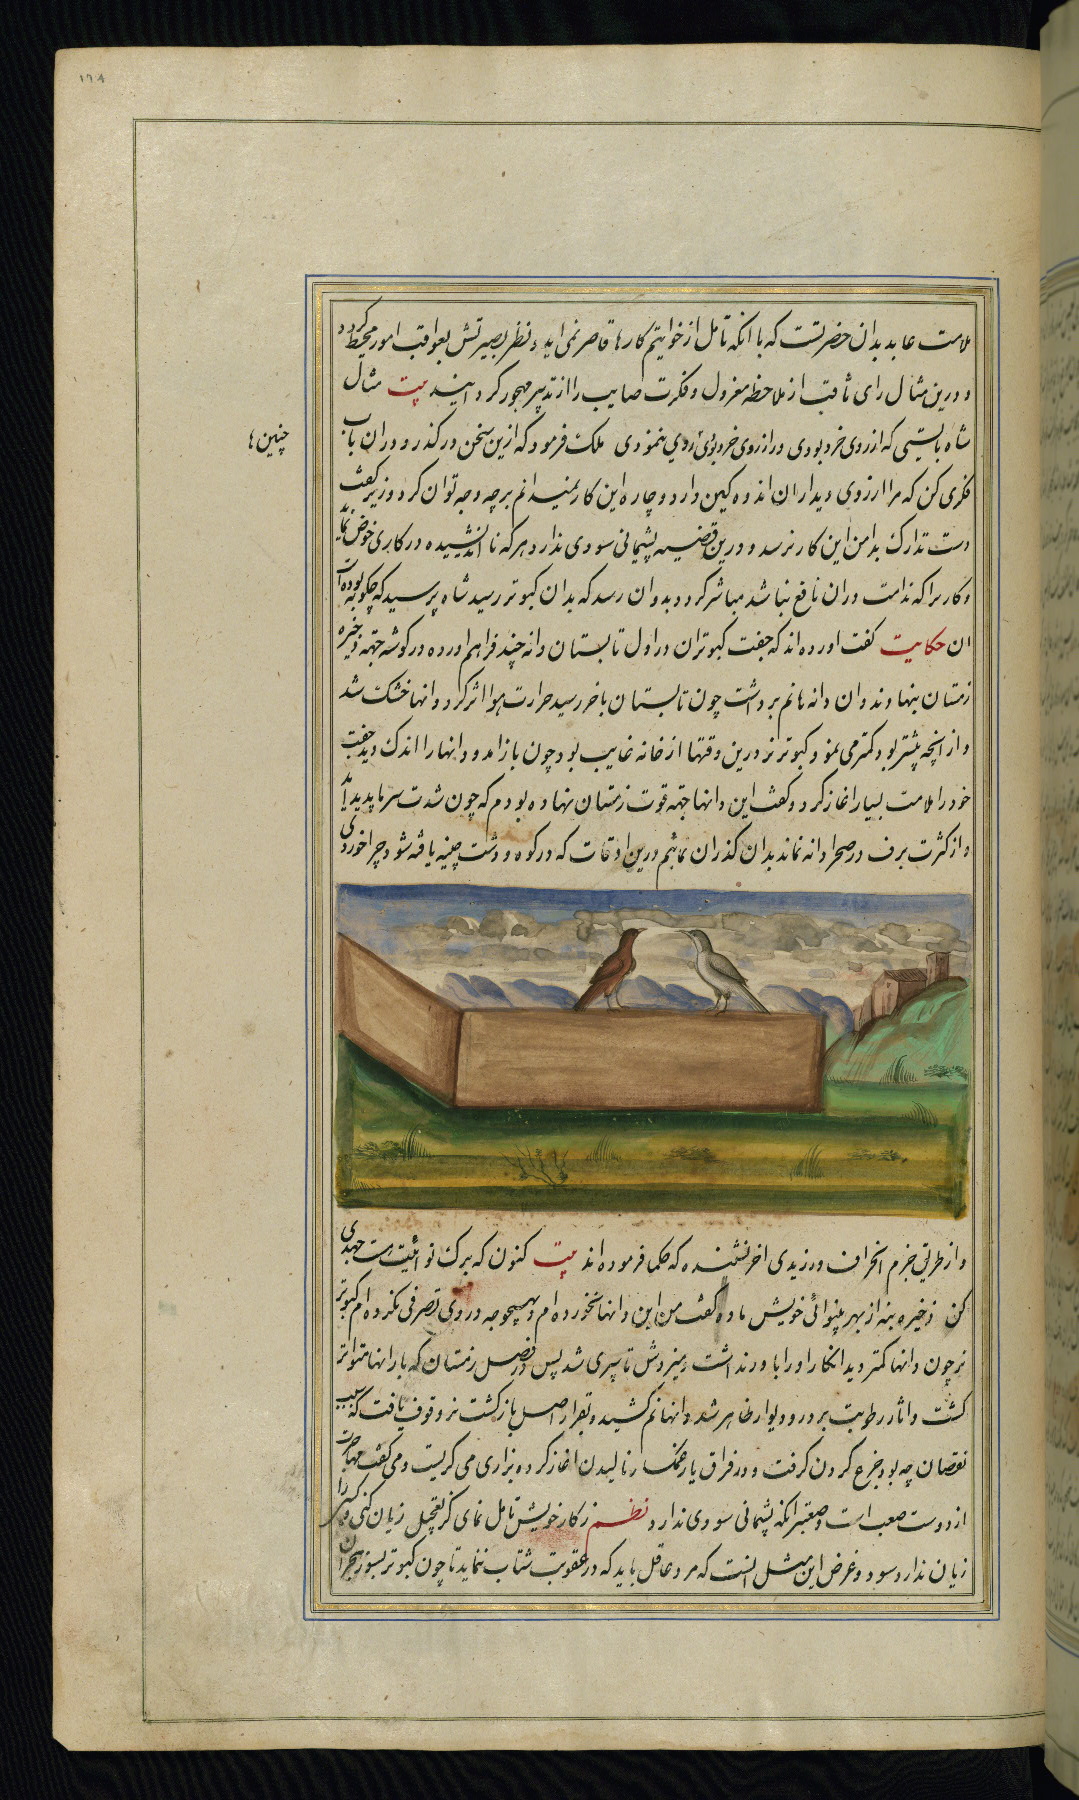 ۱۲۸
ملامت عاید بدان حضرتست که با انکه تامل از خواتیم کارها قاصر نمی اید و نظر بصیرتش بعواقب امور محیط
و درین مثال رای ثاقب از ملاحظه معزول و فکرت صایب را از تدبیر مهجور کردانید بیت مثال
شاه بایستی که از روی خرد بودی در از روی خرد بوی ملک فرمود که ازین سخن درکذر و دران باب
چنین ها
فکری کن که مرا ارزوی دیدار ان اندوه کین دارد و چاره این کار نمیدانم برچه وجه توان کرد وزیر کفت
دست تدارک بدامن این کار نرسد و درین قضیه پشیمانی سودی ندارد هرکه نا اندیشیده در کاری خوض نماید
و کاریرا که ندامت دران نافع نباشد مباشر کردد بدو ان رسد که بدان کبوتر رسید شاه پرسید که چکونه بوده است
ان حکایت کفت اورده اند که جفت کبوتران در اول تابستان دانه چند فراهم اورده در کوشه جهة ذخیره
زمستان بنهادند و ان دانه ها نم برداشت چون تابستان باخر رسید حرارت هوا اثر کرد و دانها خشک شد
و از انچه پیشتر بود کمتر می نمود و کبوتر نر درین وقتها از خانه غایب بود چون باز امد و دانها را اندک دید جفت
خود را ملامت بسیار اغاز کرد و کفت این دانها جهة قوت زمستان نهاده بودم که چون شدت سرما پدید اید
و از کثرت برف در صحرا دانه نماند بدان کذران نمایم درین اوقات که در کوه و دشت چینه یافته شود چرا خوردی
و از طریق حزم انحراف ورزیدی اخر نشنیده که حکما فرموده اند بیت کنون که برک نوائیت هست جهدی
کن ذخیره بنه از بهر بینوائی خویش ماده کفت من این دانها نخورده ام و بهیچوجه در وی تصرفی نکرده ام کبوتر
نر چون دانها کمتر دید انکار او را باور نداشت و میزدش تا سپری شد پس در فصل زمستان که بارانها متواتر
کشت و اثار رطوبت بر در و دیوار ظاهر شد دانها نم کشید و بقرار اصل بازکشت نر وقوف یافت که سبب
نقصان چه بود جزع کردن کرفت و در فراق یار غمکسار نالیدن اغاز کرده بزاری می کریست و می کفت مهاجرت
از دوست صعب است و صعبتر انکه پشیمانی سودی ندارد نظم ز کار خویش تامل نمای کز تعجیل زیان کنی و کسی را
زیان ندارد سود و غرض این مثل انست که مرد عاقل باید که در عقوبت شتاب ننماید تا چون کبوتر بسوز هجران